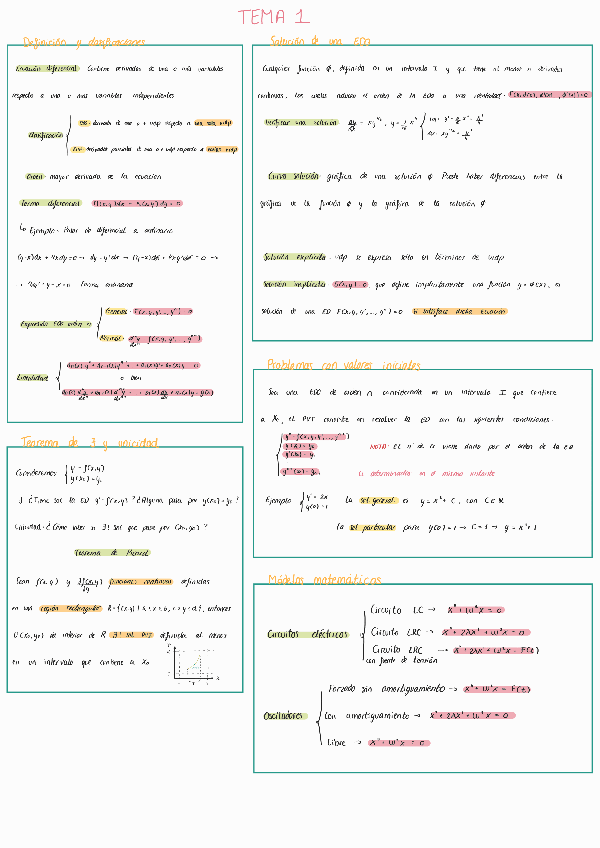 TEMA 1
Definición y clasificaciones
Ecuación diferencial Contiene derivadas de una o más variables
respecto a una o más variables independientes
EDO - derivada de una o + vdep respecto a una sola vindp
Clasificación
EDP - derivadas parciales de una o + vdep respecto a varias vindp
Orden - mayor derivada de la ecuación
Forma diferencial M(x,y)dx + N(x,y)dy = 0
Ejemplo - Pasar de diferencial a ordinaria
(y-x)dx + 4x dy = 0
4xy' + y = x Forma ordinaria
General - F(x,y,y',...,yⁿ) = 0
Expresión EDO orden n
Normal -
Linealidad
o bien
Teorema de ∃ y unicidad
Condiciones { y' = f(x,y)
y(x₀) = y₀
∃ ¿Tiene sol la ED y' = f(x,y)? ¿Alguna pasa por y(x₀) = y₀?
Unicidad - ¿Cómo saber si ∃! sol que pase por (x₀,y₀)?
Teorema de Picard
Sean f(x,y) y ∂f(x,y)/∂y funciones continuas definidas
en una región rectangular
U(x₀,y₀) de interior de R ∃! sol PVI definida al menos
en un intervalo que contiene a x₀
Solución de una EDO
Cualquier función ϕ, definida en un intervalo I y que tiene al menos n derivadas
continuas, las cuales reducen el orden de la EDO a una identidad -
Verificar una solución
Curva solución gráfica de una solución ϕ Puede haber diferencias entre la
gráfica de la función ϕ y la gráfica de la solución ϕ
Solución explícita - vdp se expresa sólo en términos de vindp
Solución implícita G(x,y) = 0, que define implícitamente una función y = ϕ(x), es
solución de una ED F(x,y,y',...,yⁿ) = 0 si satisface dicha ecuación
Problemas con valores iniciales
Sea una EDO de orden n considerada en un intervalo I que contiene
a x₀, el PVI consiste en resolver la ED con las siguientes condiciones:
y(x₀) = y₀
y'(x₀) = y₁
NOTA: El nº de ci viene dado por el orden de la ED
Ci determinadas en el mismo instante
Ejemplo { y' = 2x
y(0) = 1
La sol general es y = x² + C, con C∈ℝ
La sol particular para y(0) = 1 → C = 1 → y = x² + 1
Modelos matemáticos
Circuito LC → x'' + w²x = 0
Circuitos eléctricos
Circuito LRC → x'' + 2λx' + w²x = 0
Circuito LRC → x'' + 2λx' + w²x = F(t)
con fuente de tensión
Forzado sin amortiguamiento → x'' + w²x = F(t)
Osciladores
Con amortiguamiento → x'' + 2λx' + w²x = 0
Libre → x'' + w²x = 0